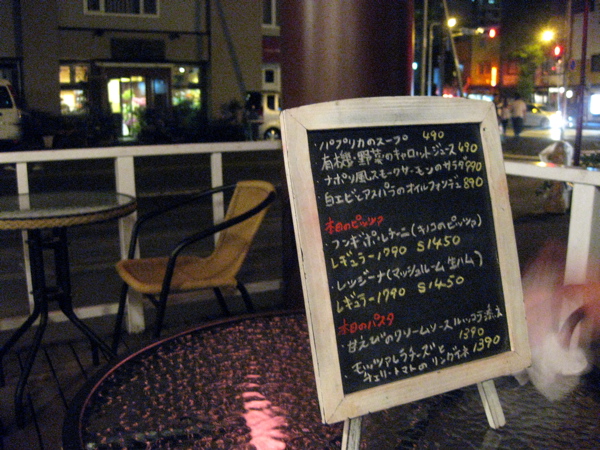 ・パプリカのスープ 490
有機・野菜のキャロットジュース 490
・ナポリ風スモークサーモンのサラダ 990
・白エビとアスパラのオイルフォンデュ 890
本日のピッツァ
・フンギポルチーニ(キノコのピッツァ)
レギュラー1790 S1450
・レジーナ(マッシュルーム 生ハム)
レギュラー1790 S1450
本日のパスタ
・甘えびのクリームソース ルッコラ添え
1390
・モッツァレラチーズと
チェリートマトのリングイネ 1390